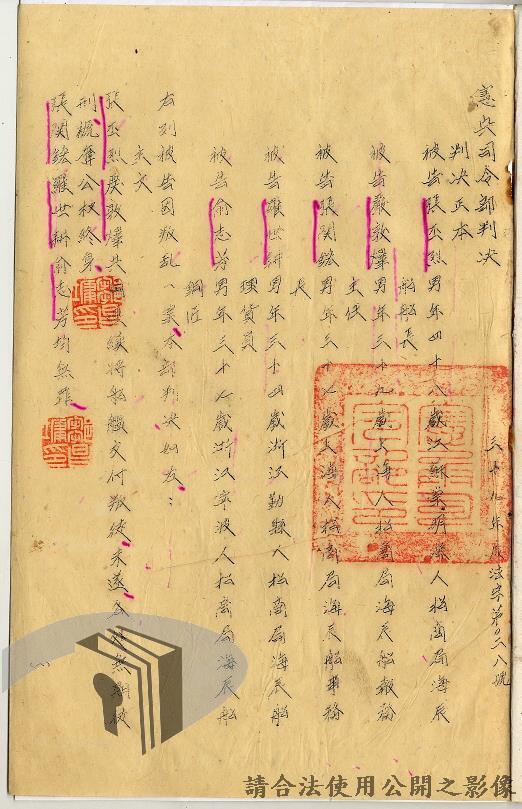 憲兵司令部判决
三十九年 法字第〇三八號
判决正本
被告張丕烈男年四十八歲江蘇崇明縣人招商局海辰
船船長
被告嚴敦燁男年三十九歲上海人招商局海辰船報務
主任
被告張閱錄男年三十七歲上海人招商局海辰船事務
長
被告羅世耕男年三十四歲浙江勤縣人招商局海辰船
理貨員
被告俞志芳男年三十八歲浙江寧波人招商局海辰船
銅匠
右列被告因叛乱一案本部判决如左：
主文
張丕烈嚴敦燁共同連續將船艦交付叛徒未遂各處無期徒
刑褫奪公权終身
張閱錄羅世耕俞志芳均無罪
請合法使用公開之影像